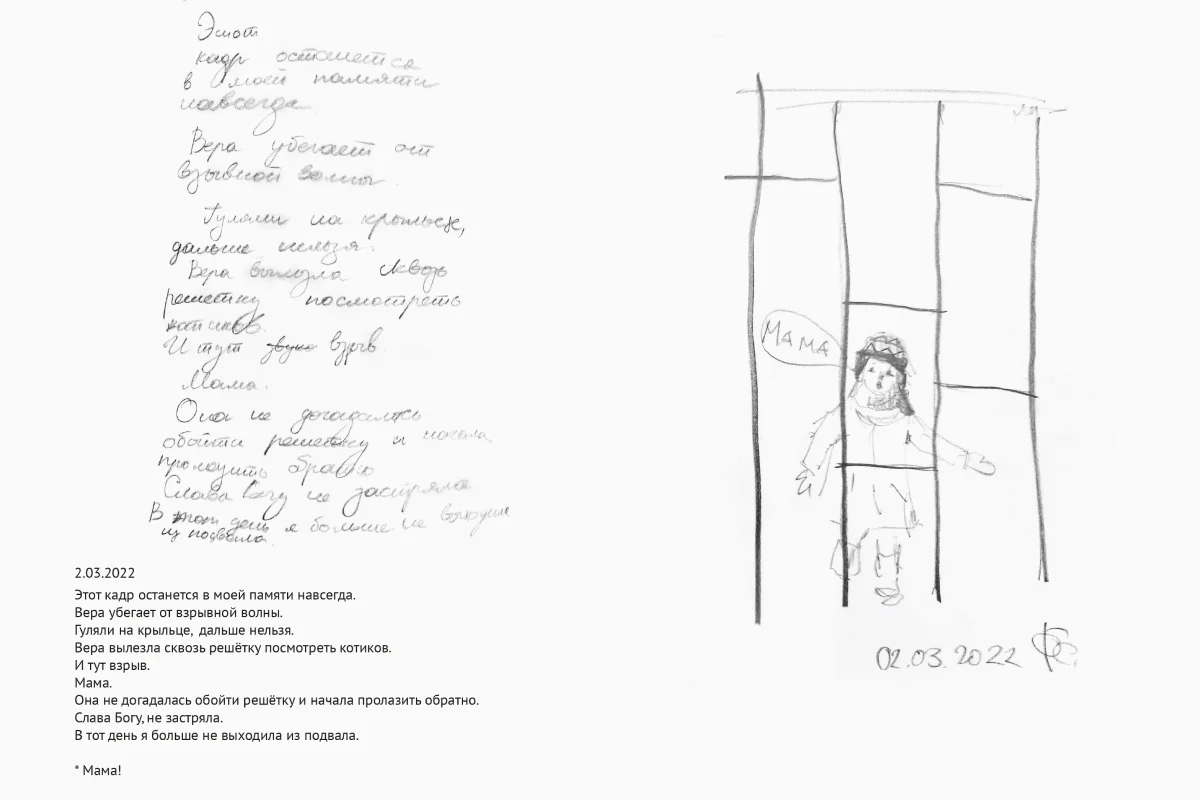 Этот
кадр останется
в моей памяти
навсегда
Вера убегает от
взрывной волны
Гуляли на крыльце,
дальше нельзя.
Вера вылезла сквозь
решетку посмотреть
котиков.
И тут звук взрыв
Мама.
Она не догадалась
обойти решетку и начала
пролазить обратно
Слава Богу не застряла
В тот день я больше не выходила
из подвала.
2.03.2022
Этот кадр останется в моей памяти навсегда.
Вера убегает от взрывной волны.
Гуляли на крыльце, дальше нельзя.
Вера вылезла сквозь решётку посмотреть котиков.
И тут взрыв.
Мама.
Она не догадалась обойти решётку и начала пролазить обратно.
Слава Богу, не застряла.
В тот день я больше не выходила из подвала.
* Мама!
МАМА
02.03.2022